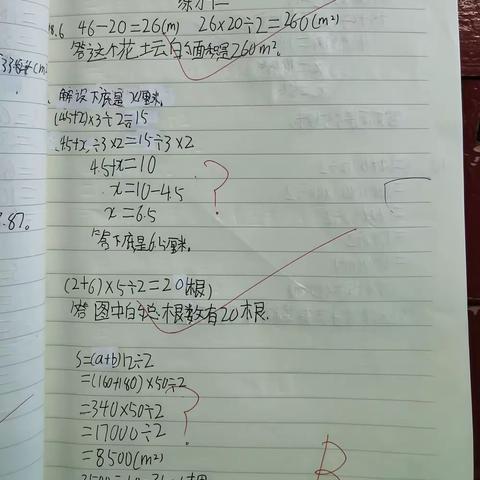 练习仁
18.6 46-20=26(m) 26×20÷2=260(m²)
答这个花坛的面积是260m².
解设下底是x厘米.
(45+x)×3÷2=15
45+x÷3×2=15÷3×2
4.5+x=10
x=10-4.5
x=6.5
答下底是6.5厘米.
.87。
(2+6)×5÷2=20(根)
答 图中的总根数有20根.
S=(a+b)h÷2
=(160+180)×50÷2
=340×50÷2
=17000÷2
=8500(m²)
B